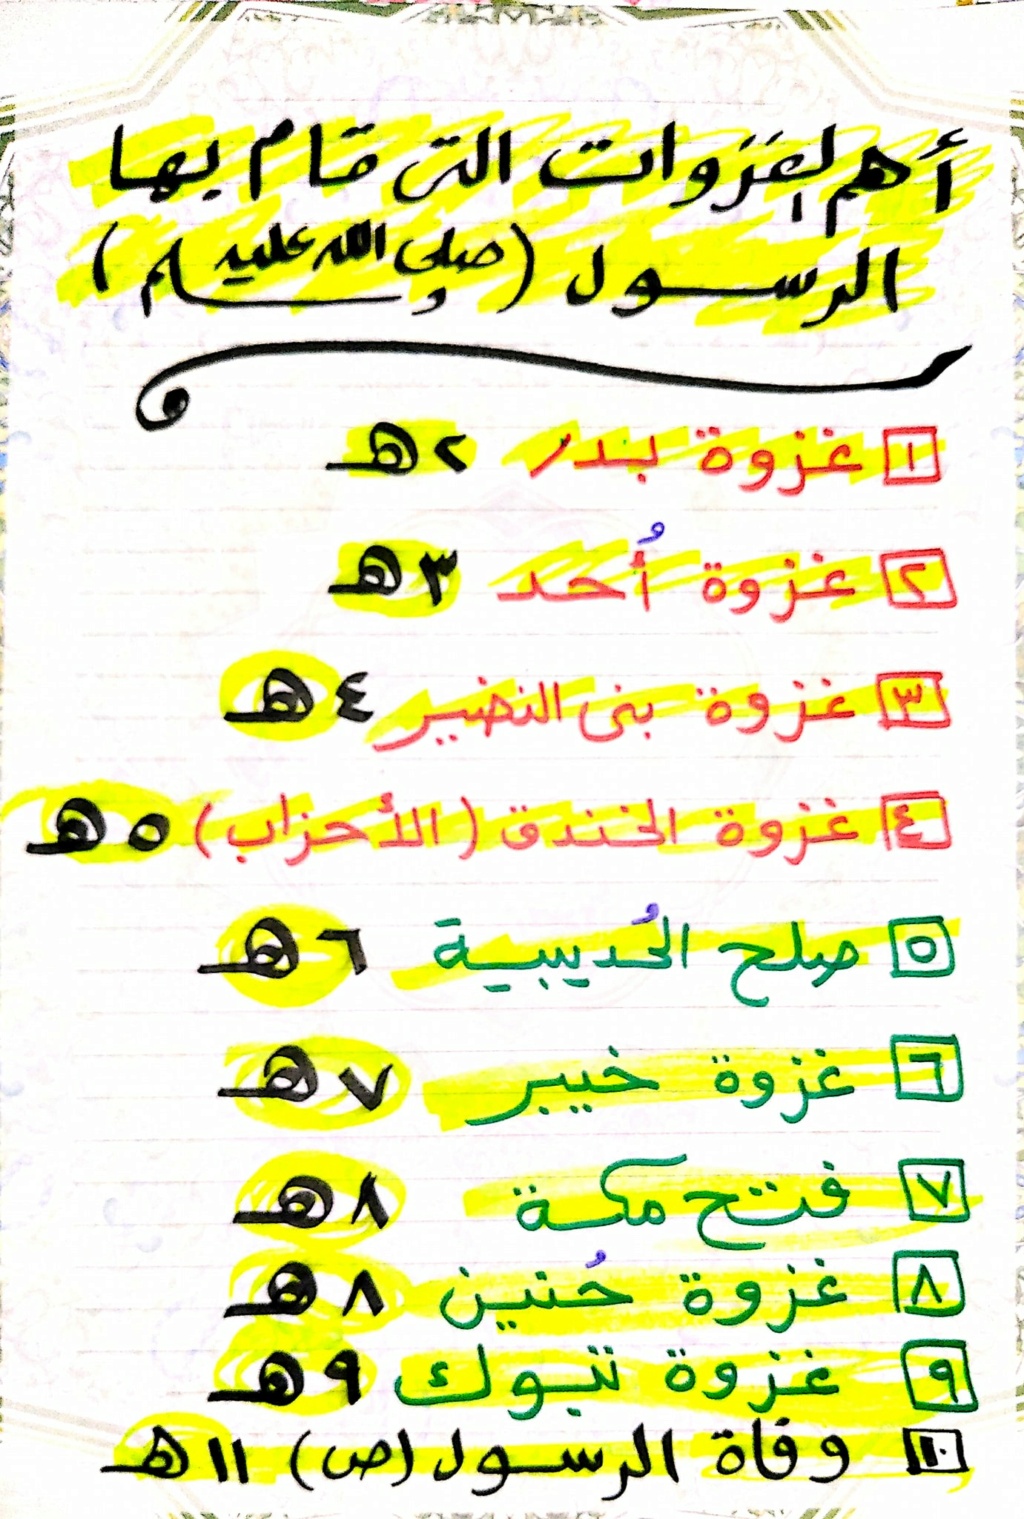 أهم الغَزَوات التى قام بها
الرسول (صلى الله عليه وسلم)
١ غزوة بدر ٢ هـ
٢ غزوة أُحد ٣ هـ
٣ غزوة بنى النضير ٤ هـ
٤ غزوة الخندق (الأحزاب) ٥ هـ
٥ صلح الحُديبية ٦ هـ
٦ غزوة خيبر ٧ هـ
٧ فتح مكة ٨ هـ
٨ غزوة حُنين ٨ هـ
٩ غزوة تبوك ٩ هـ
١٠ وفاة الرسول (ص) ١١ هـ